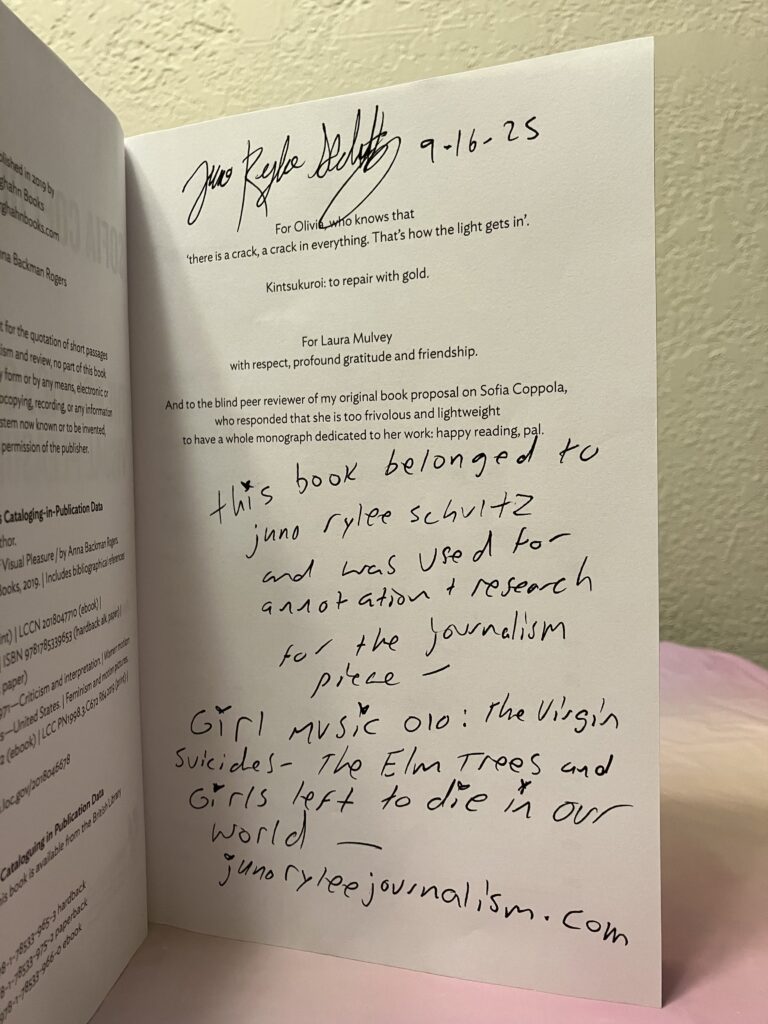 blished in 2019 by
ghahn Books
rghahnbooks.com
na Backman Rogers
t for the quotation of short passages
ism and review, no part of this book
y form or by any means, electronic or
ocopying, recording, or any information
stem now known or to be invented,
permission of the publisher.
s Cataloging-in-Publication Data
thor.
f Visual Pleasure / by Anna Backman Rogers.
Books, 2019. | Includes bibliographical references
int) | LCCN 2018047710 (ebook) |
| ISBN 9781785339653 (hardback: alk. paper) |
paper)
971—Criticism and interpretation. | Women motion
s—United States. | Feminism and motion pictures.
2 (ebook) | LCC PN1998.3.C672 R64 2019 (print) |
.loc.gov/2018046678
Cataloguing in Publication Data
his book is available from the British Library
78-1-78533-965-3 hardback
78-1-78533-975-2 paperback
78-1-78533-966-0 ebook
Juno Rylee Schultz 9-16-25
For Olivia, who knows that
‘there is a crack, a crack in everything. That’s how the light gets in’.
Kintsukuroi: to repair with gold.
For Laura Mulvey
with respect, profound gratitude and friendship.
And to the blind peer reviewer of my original book proposal on Sofia Coppola,
who responded that she is too frivolous and lightweight
to have a whole monograph dedicated to her work: happy reading, pal.
this book belonged to
juno rylee schultz
and was used for
annotation + research
for the journalism
piece —
Girl Music 010: The Virgin
Suicides- The Elm Trees and
Girls left to die in our
world —
junoryleejournalism.com